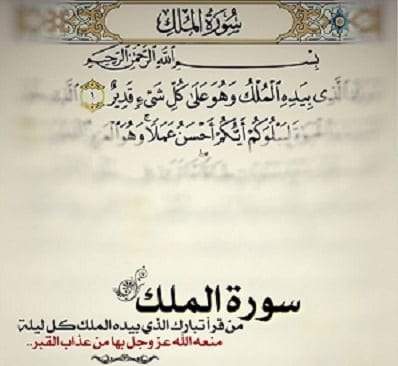 سُورَةُ المُلْكِ
بِسْمِ اللَّهِ الرَّحْمَٰنِ الرَّحِيمِ
الَّذِي بِيَدِهِ الْمُلْكُ وَهُوَ عَلَىٰ كُلِّ شَيْءٍ قَدِيرٌ ١
لِيَبْلُوَكُمْ أَيُّكُمْ أَحْسَنُ عَمَلًا ۚ وَهُوَ
سورة الملك
من قرأ تبارك الذي بيده الملك كل ليلة
منعه الله عز وجل بها من عذاب القبر..